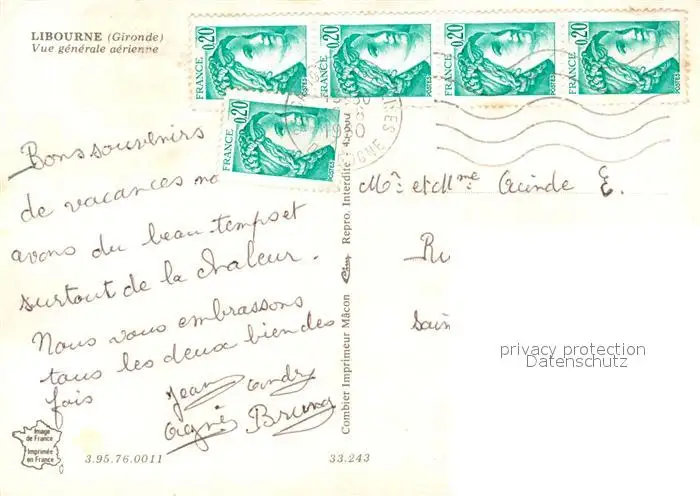 LIBOURNE (Gironde)
Vue générale aérienne
0,20 FRANCE POSTES
0,20 FRANCE POSTES
0,20 FRANCE POSTES
0,20 FRANCE POSTES
0,20 FRANCE POSTES
Bons souvenirs
de vacances no
avons du beau temps et
surtout de la chaleur.
Nous vous embrassons
tous les deux bien des
fois
Jean André
Agnès Bruno
Combier Imprimeur Mâcon Cim Repro. Interdite
Mr et Mme E.
Ru
Sain
privacy protection
Datenschutz
Image
de France
Imprimée
en France
3.95.76.0011
33.243